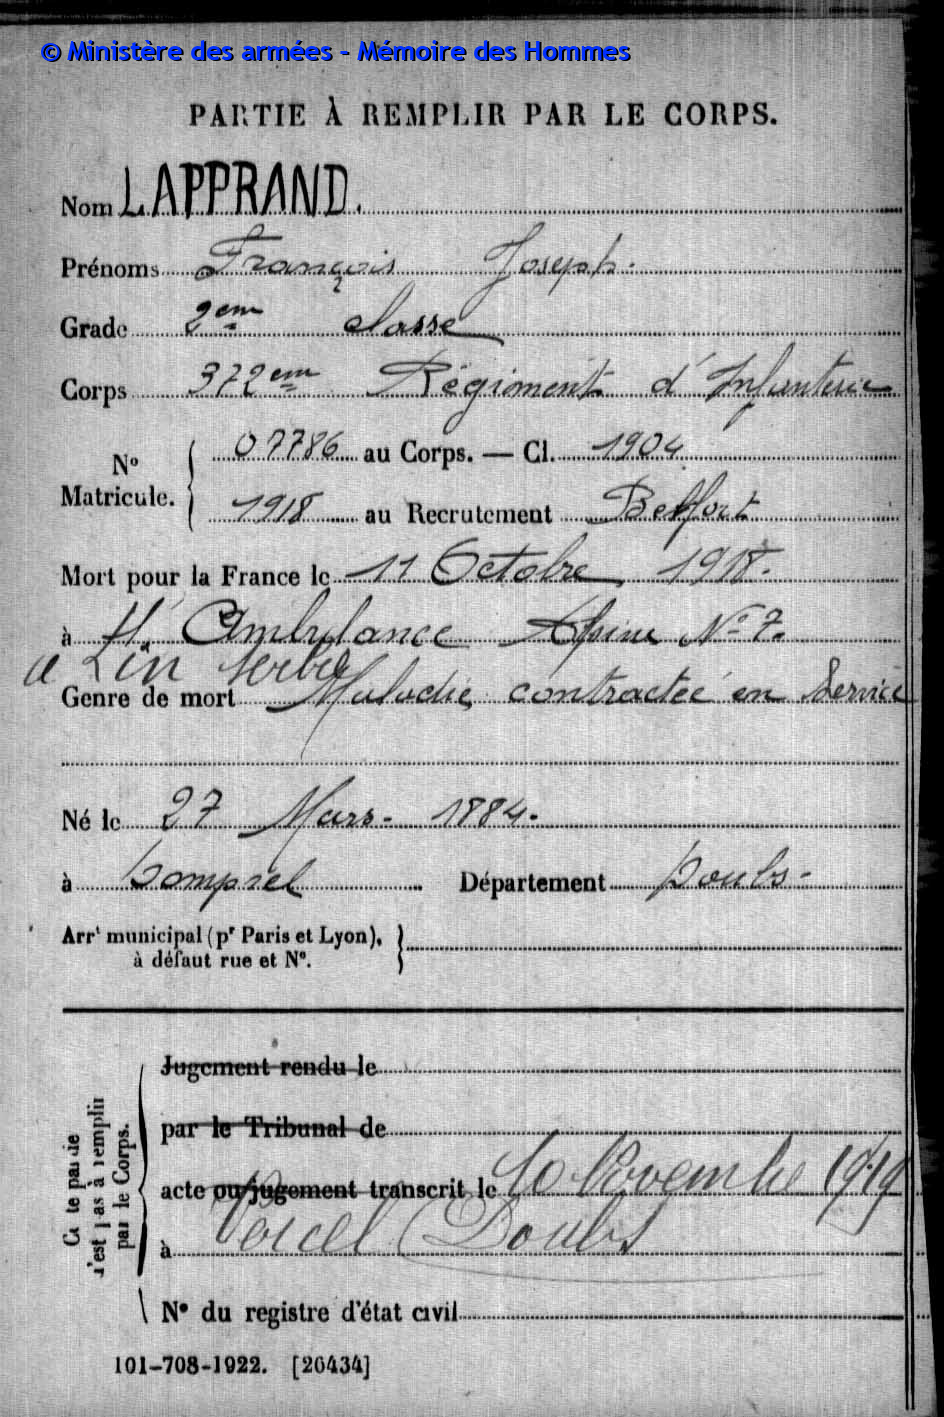 © Ministère des armées - Mémoire des Hommes
PARTIE À REMPLIR PAR LE CORPS.
Nom LAPPRAND.
Prénoms François Joseph.
Grade 2em classe
Corps 372em Régiment d'Infanterie
No Matricule. 07786 au Corps. — Cl. 1904
1918 au Recrutement Belfort
Mort pour la France le 11 Octobre 1918.
à Ambulance Alpine No 7.
a
Genre de mort Maladie contractée en Service
Né le 27 Mars - 1884.
à Département Doubs -
Arrt municipal (pr Paris et Lyon),
à défaut rue et No.
Cette partie
n'est pas à remplir
par le Corps.
Jugement rendu le
par le Tribunal de
acte ou jugement transcrit le 10 Novembre 1919
à Vercel (Doubs
No du registre d'état civil
101-708-1922. [26434]